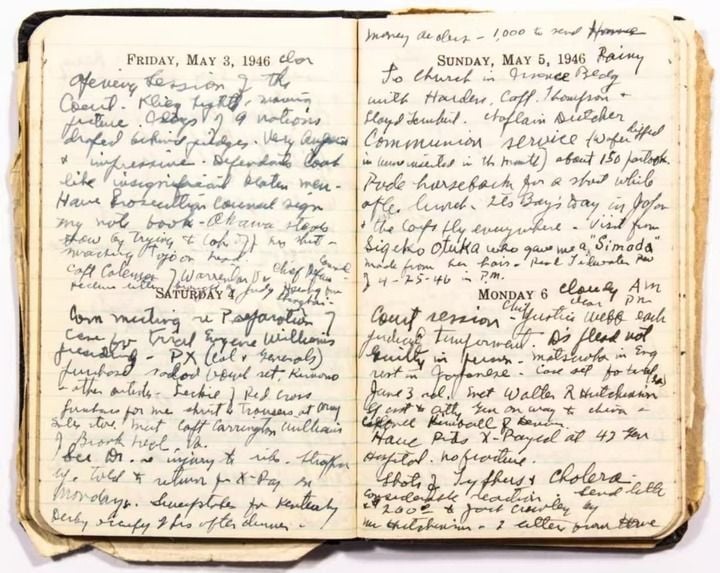 FRIDAY, MAY 3, 1946 clear
Opening Session of the
Court. Klieg lights, moving
picture. Flags of 9 nations
draped behind judges. Very
& impressive. Defendants look
like insignificant beaten men -
Have Prosecution Counsel sign
my note book - Okawa steals
show by trying to take off his shirt -
smacking Tojo on head.
Capt Coleman of Warrenton Va Chief Defense Counsel
SATURDAY 4
Com meeting re Preparation of
case for trial Eugene Williams
presiding - PX (Col & Generals)
purchase salad bowl set, Kimono
& other articles - Leckie of Red Cross
purchase for me shirt & trousers at Army
Sales store. Meet Capt Carrington Williams
of Brook
See Dr. re injury to rib.
Told to return for X-Ray on
Monday. Sweepstakes for Kentucky
Derby after dinner.
money orders - 1,000 to send Home
SUNDAY, MAY 5, 1946 Rainy
To Church in Finance Bldg
with Harden, Capt. Thompson &
Lloyd Chaplain Dietcher
Communion service (wafer dipped
in wine inserted in the mouth) about 150 partook.
Rode horseback for a short while
after lunch. It's Boy's Day in Japan
& the Carp fly everywhere - Visit from
Sigeko Otuka who gave me a "Simada"
made from her hair - Read Tidewater Rev
of 4-25-46 in P.M.
MONDAY 6 cloudy AM
clear PM
Court session Chief Justice Webb
judicial temperament. D's plead not
guilty in person - Matsuoka in Eng
rest in Japanese. Case set for trial
June 3rd. Met Walter R Hutchinson
Asst to Atty Gen on way to China -
Colonel Kimball &
Have Ribs X-Rayed at 42 Gen
Hospital. no fracture.
Shots of Typhus & Cholera -
considerable reaction - Send letter
& $200.00 to Crowley by
Mr Hutchinson - 2 letters from Home